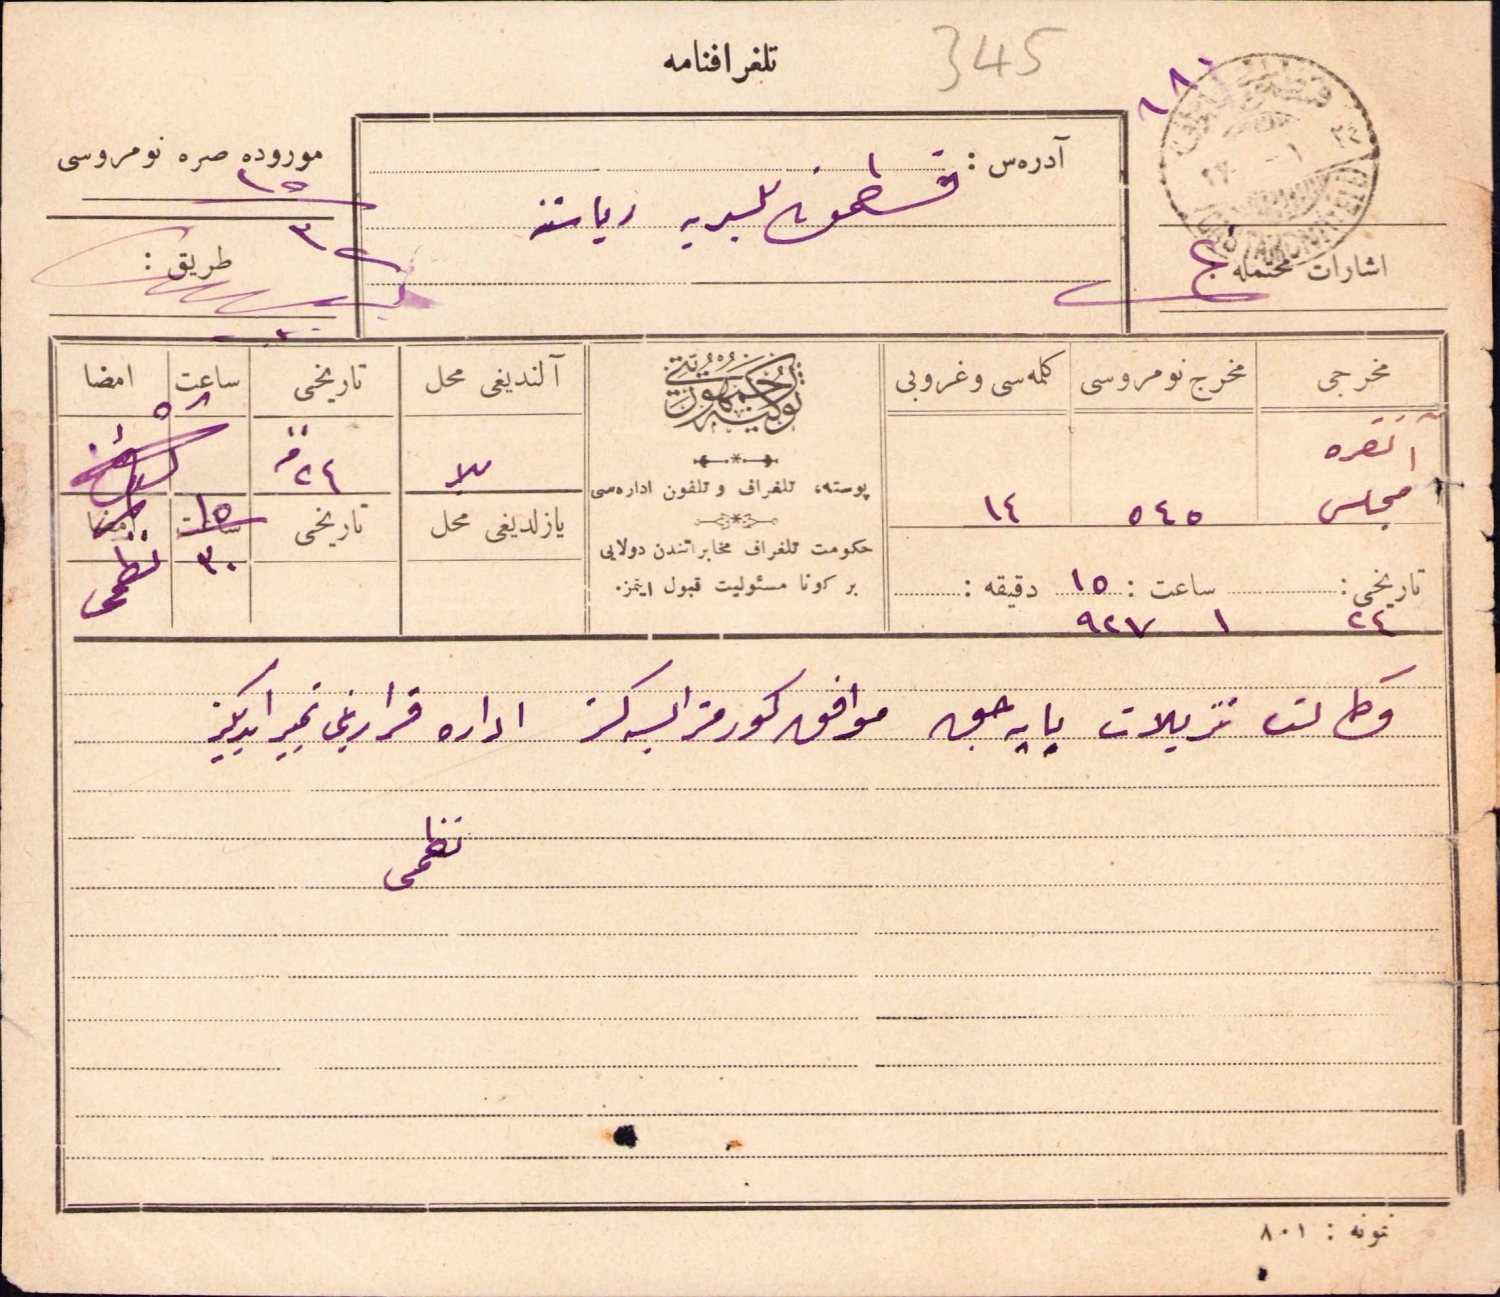 تلغرافنامه
345
موروده صره نومروسی
١٥
٣٢
طریق :
آدره‌س :
قسطمونی بلدیه ریاستنه
اشارات محتمله
ج
CASTAMONI
مخرجی
مخرج نومروسی
كلمه‌سی وغروبی
آنقره
مجلس
٥٤٥
١٤
تاریخی : ساعت : ١٥ دقیقه :
٢٤ ١ ٩٢٧
توركیه جمهوریتی
پوسته، تلغراف و تلفون اداره‌سی
حكومت تلغراف مخابراتندن دولایی
بر كونا مسئولیت قبول ایتمز.
آلندیغی محل
تاریخی
ساعت
امضا
٢٤
یازلدیغی محل
تاریخی
ساعت
امضا
١٥
٣٠
نظمی
وكالت تنزیلات یاپه‌جق موافق كورمز ایسه‌كز اداره قرارینی تمییز ایدیكز
نظمی
نمونه : ٨٠١